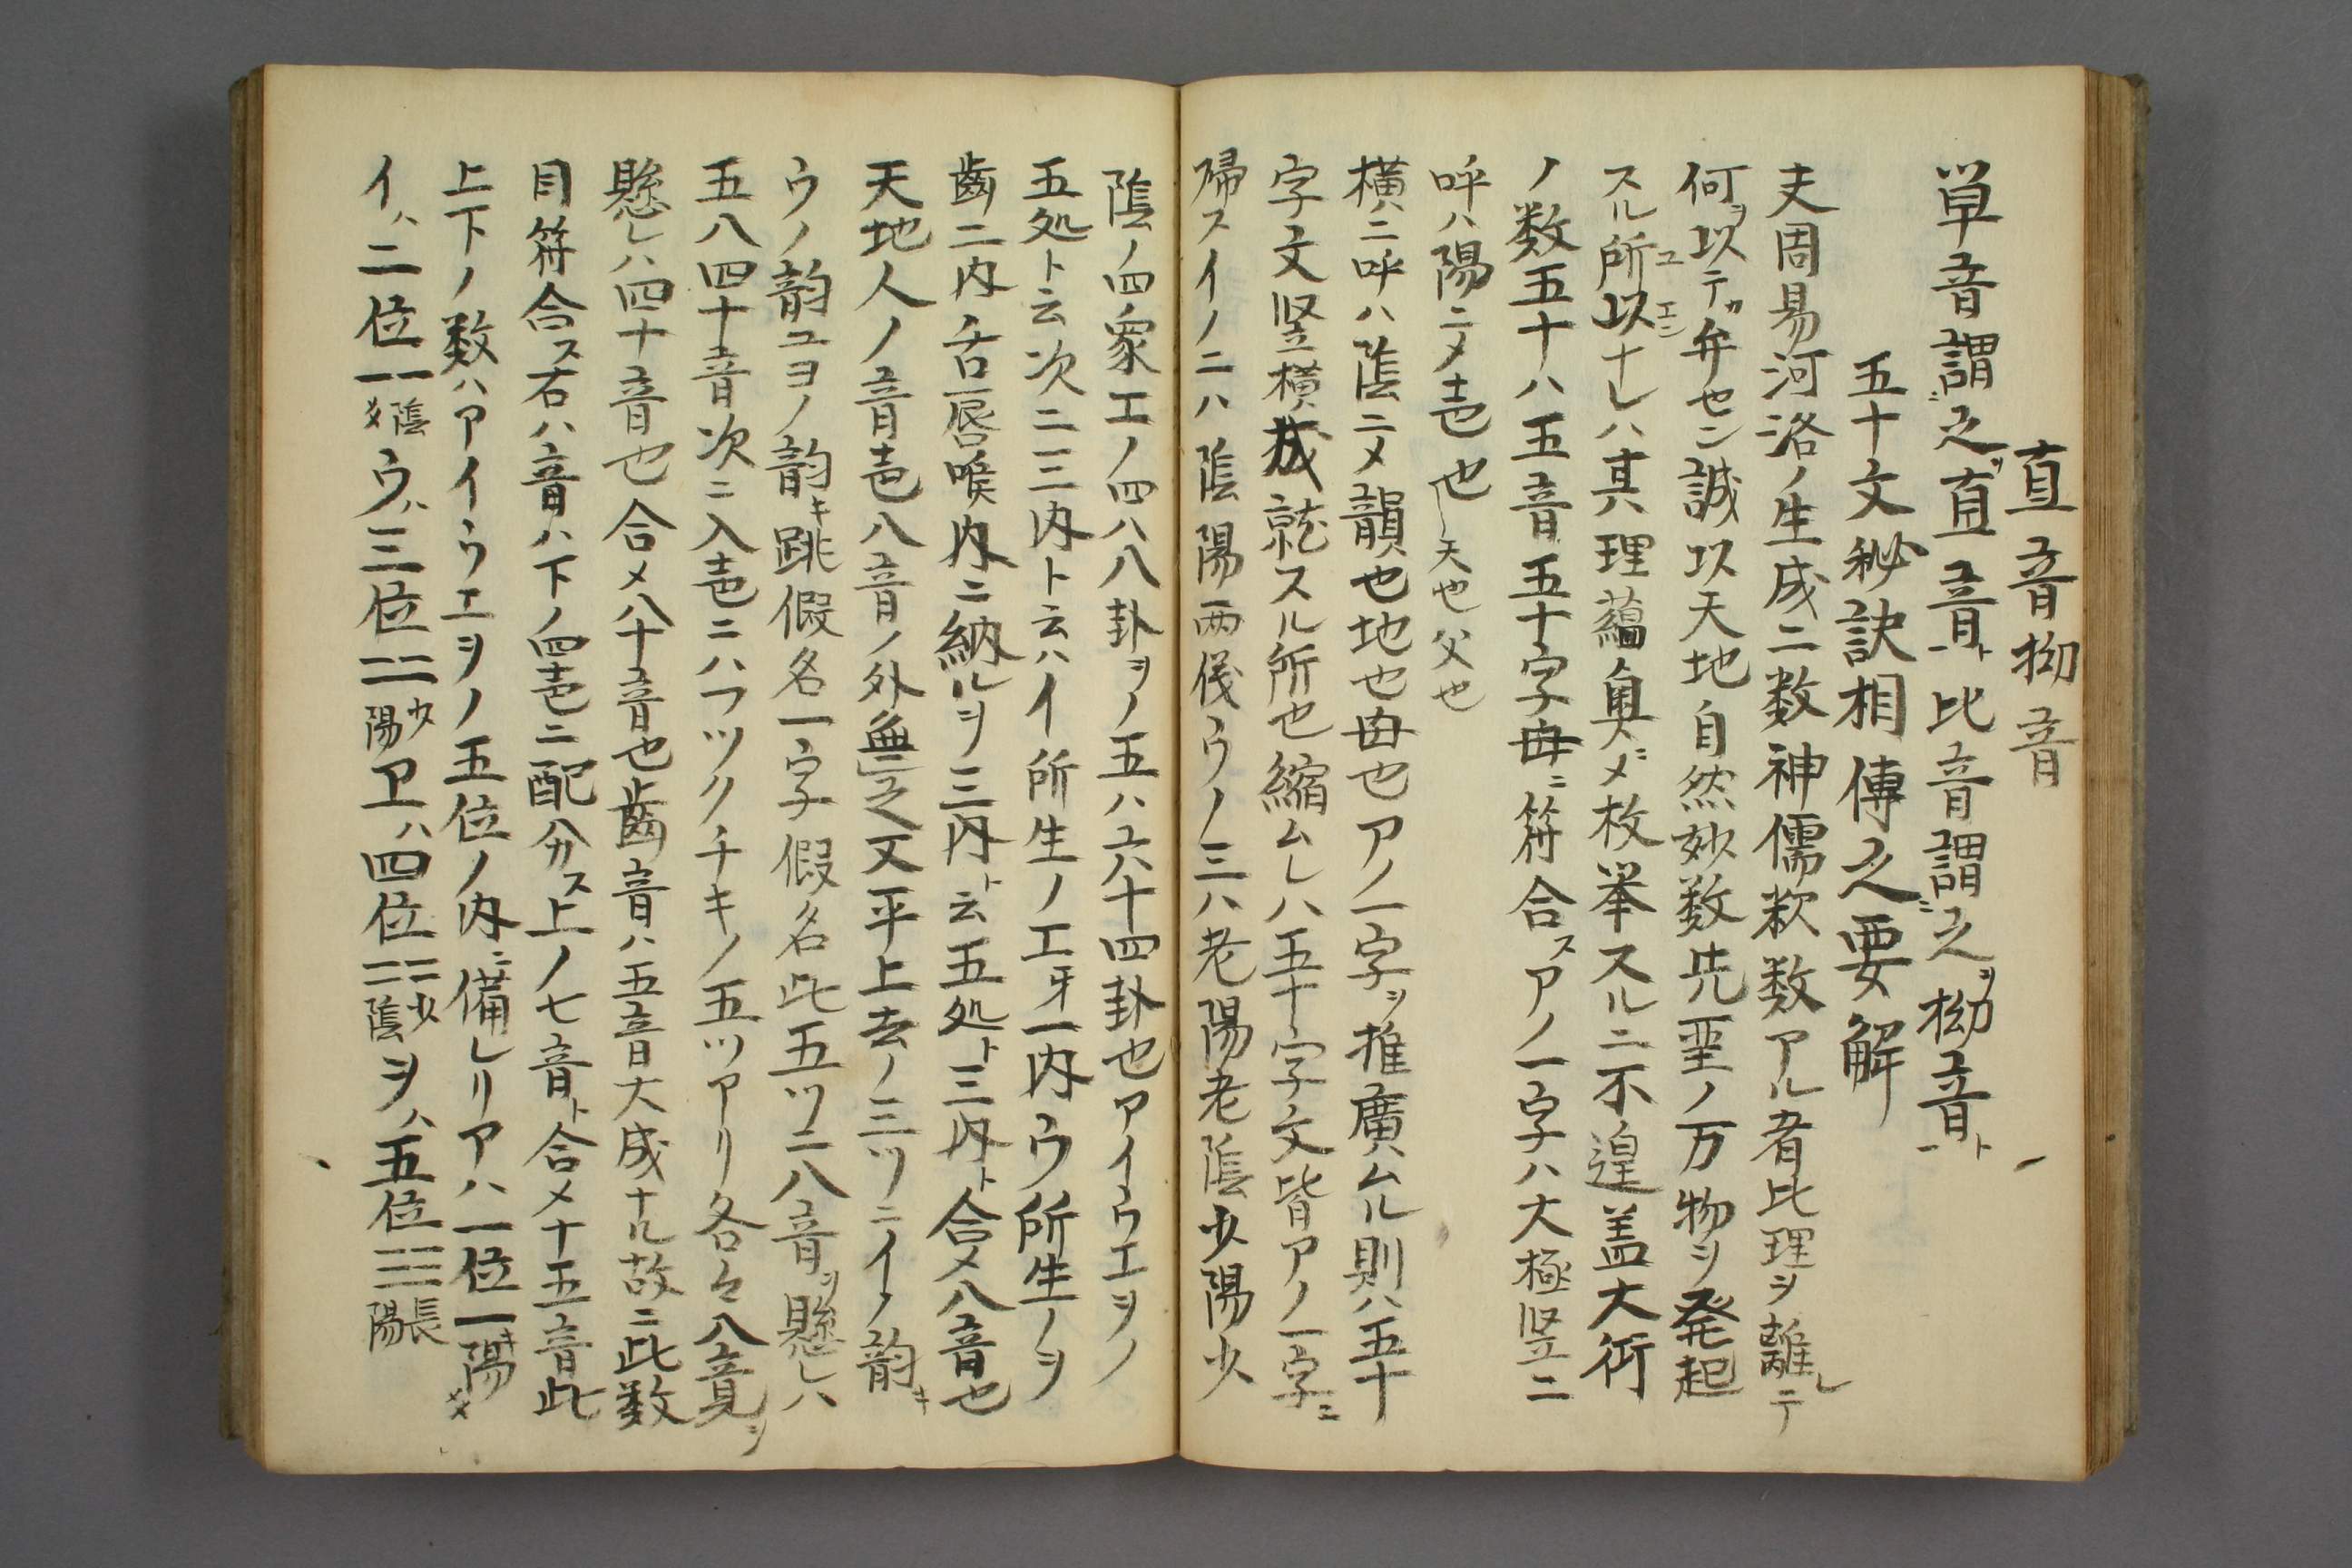 直音拗音
単音謂之ヲ直音ト比音謂之ヲ拗音ト
五十文秘訣相傳之要解
夫周易河洛ノ生成ニ数神儒釈数アル者此理ヲ離レテ
何ヲ以テカ弁セン誠以天地自然妙数先聖ノ万物ヲ発起
スル所以ナレハ其理蘊奥ニメ枚挙スルニ不遑盖大衍
ノ数五十ハ五音五十字母ニ符合スアノ一字ハ大極竪ニ
呼ハ陽ニメ壱也天也父也
横ニ呼ハ陰ニメ韻也地也母也アノ一字ヲ推廣ムル則ハ五十
字文竪横成就スル所也縮ムレハ五十字文皆アノ一字ニ
帰スイノ二ハ陰陽両儀ウノ三ハ老陽老陰少陽少
陰ノ四象エノ四ハ八卦ヲノ五ハ六十四卦也アイウエヲノ
五処ト云次ニ三内ト云ハイ所生ノエ牙一内ウ所生ノヲ
歯ニ内ノ舌唇喉内ニ納ルヲ三内ト云五処ト三内ト合メ八音也
天地人ノ音壱八音ノ外無之又平上去ノ三ツニイノ韵キ
ウノ韵ユヨノ韵キ跳假名一字假名此五ツニ八音ヲ懸レハ
五八四十音次ニ入壱ニハフツクチキノ五ツアリ各々八音ヲ
懸レハ四十音也合メ八十音也歯音ハ五音大成ナル故ニ此数
目符合ス右ハ音ハ下ノ四壱ニ配分ス上ノ七音ト合メ十五音此
上下ノ数ハアイウエヲノ五位ノ内ニ備レリアハ一位一陽キメ
イハ二位陰メウハ三位少陽エハ四位少陰ヲハ五位長陽